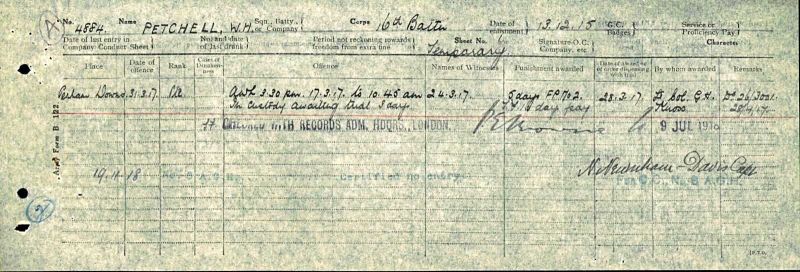 No. 4884. Name PETCHELL, W.H. Sqn., Batty., or Company Corps 16th Battn Date of enlistment 13.12.15 G.C. Badges Service or Proficiency Pay
Date of last entry in Company Conduct Sheet No. and date of last drunk Period not reckoning towards freedom from extra fine Sheet No. Temporary Signature O.C. Company, etc. Character
Place Date of offence Rank Cases of Drunkenness Offence Names of Witnesses Punishment awarded Date of award or of order dispensing with trial By whom awarded Remarks
Perham Downs 31.3.17. Pte AWL 3.30 pm. 17.3.17. to 10.45 am 24.3.17. 5 days F.P. No 2. 28.3.17. Lt Col. G.H. Knox
In custody awaiting trial 5 days. day pay
CHECKED WITH RECORDS ADM. HDQRS. LONDON. 9 JUL
19.11.18 No. 5 A.G.H. Certified no entry. N. Newnham-Davis Capt
For O.C. No. 5 A.G.H.
Army Form B. 122.
A
2
[P.T.O.